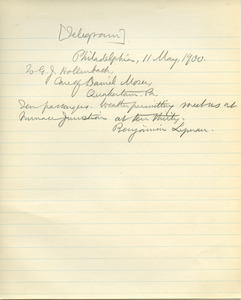 [Telegram]
Philadelphia, 11 May, 1900.
To E. J. Hollenbach,
Care of Daniel Moser,
Quakertown, Pa.
Ten passengers. Weather permitting meet us at
Furnace Junction at ten thirty.
Benjamin Lyman.